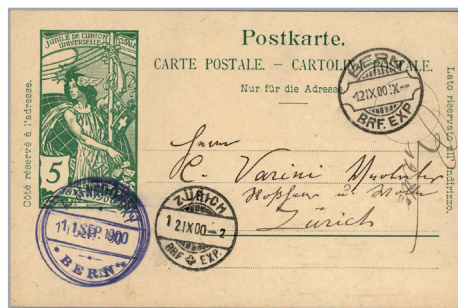 JUBILÉ DE L'UNION
UNIVERSELLE
5
Postkarte.
CARTE POSTALE. – CARTOLINA POSTALE.
Nur für die Adresse
Côté réservé à l'adresse.
Lato riservato all'indirizzo.
BERN
12.IX.00.
BRF. EXP.
Herrn
C. Varini
Zürich
ZÜRICH
12.IX.00 – 2
BRF. EXP.
11. SEP. 1900
BERN